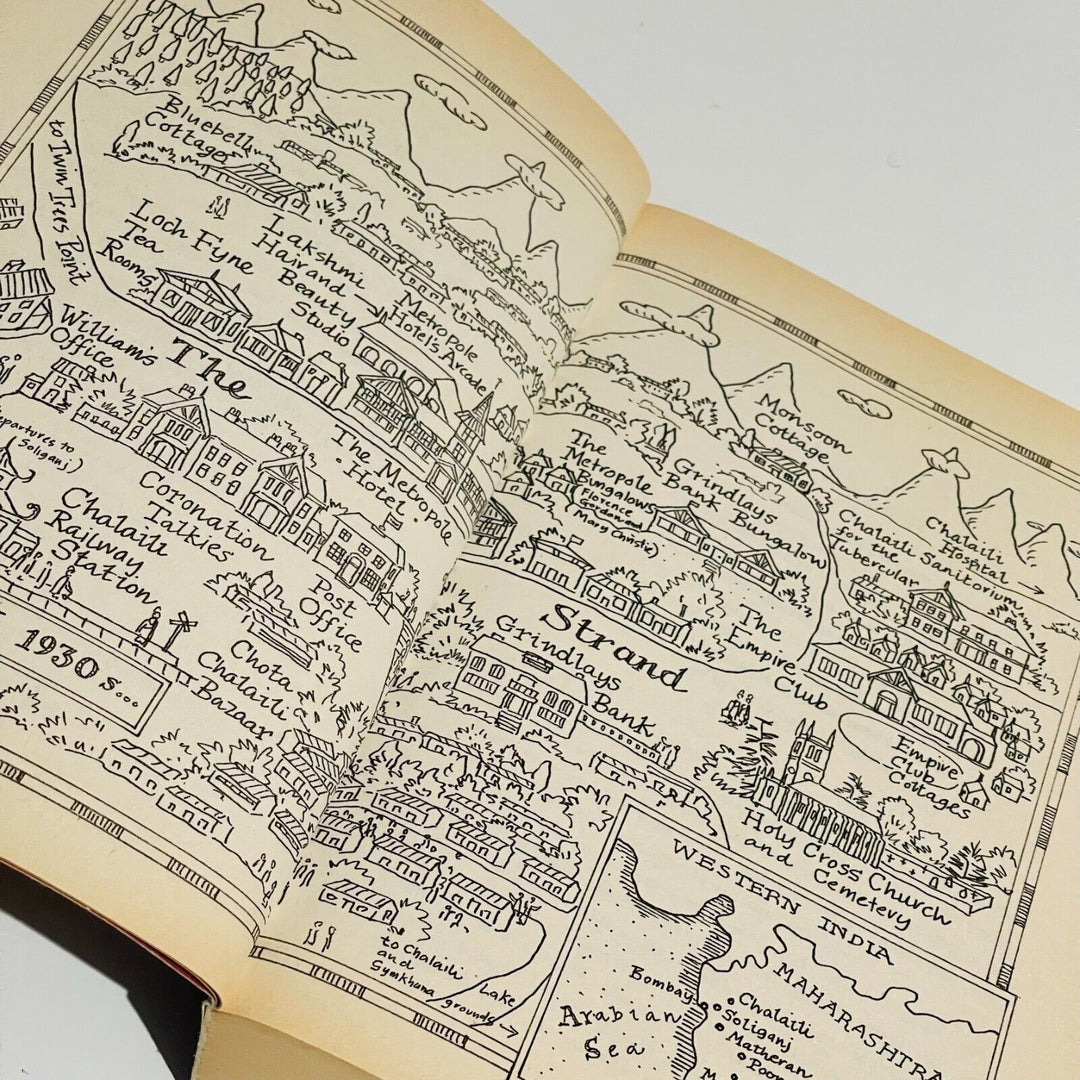 Bluebell
Cottage
to Twin Trees Point
Loch Fyne
Tea
Rooms
Lakshmi
Hair and
Beauty
Studio
Metropole
Hotel's Arcade
William's
Office
The
Departures to
Soliganj)
The Metropole
Hotel
Coronation
Talkies
Chalaili
Railway
Station
Post
Office
Chota
Chalaili
Bazaar
1930s...
Monsoon
Cottage
The
Metropole
Bungalows
(Florence
Gordon and
Mary Christie)
Grindlays
Bank Bungalow
Chalaili Sanitorium
for the
Tubercular
Chalaili
Hospital
Strand
The
Empire
Club
Grindlays
Bank
Empire
Club
Cottages
Holy Cross Church
and
Cemetery
to Chalaili Lake
and
Gymkhana grounds
WESTERN INDIA
MAHARASHTRA
Bombay
Chalaili
Soliganj
Matheran
Arabian
Sea